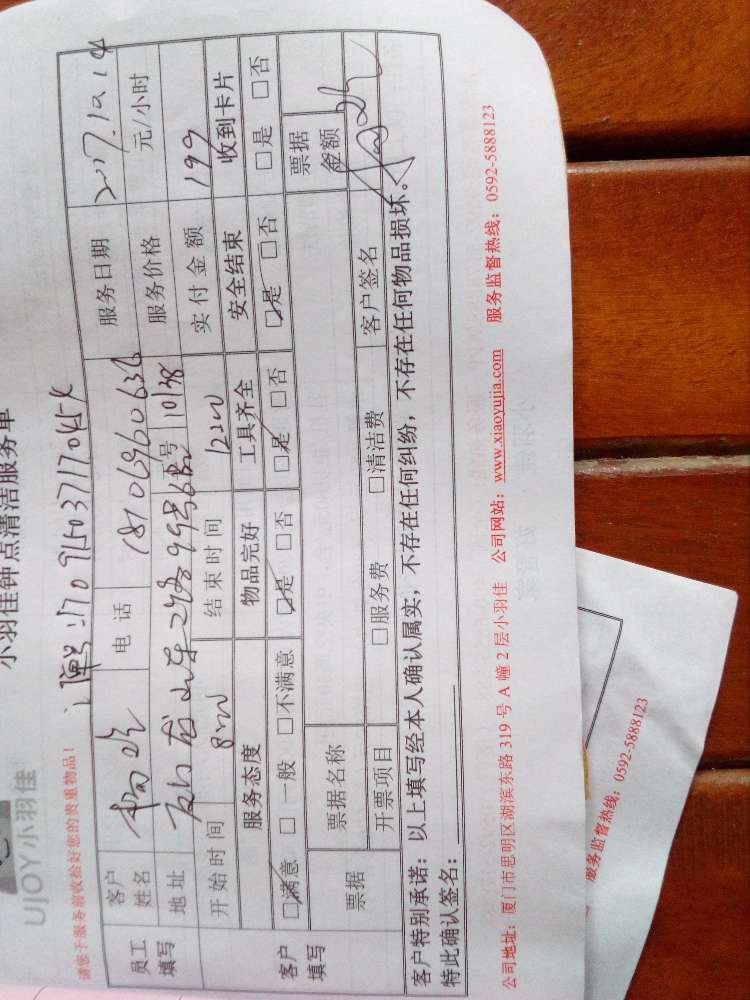 小羽佳钟点清洁服务单
UJOY小羽佳
请您于服务前收拾好您的贵重物品！
员工填写 客户姓名 电话 服务日期 2017.10.14
地址 工号 10138 服务价格 元/小时
开始时间 8:00 结束时间 12:00 实付金额 199
客户填写 服务态度 物品完好 工具齐全 安全结束 收到卡片
☑满意 □一般 □不满意 ☑是 □否 ☑是 □否 ☑是 □否 □是 □否
票据 票据名称 票据金额
开票项目 □服务费 □清洁费 客户签名
客户特别承诺：以上填写经本人确认属实，不存在任何纠纷，不存在任何物品损坏。
特此确认签名：
公司地址：厦门市思明区湖滨东路 319 号 A 幢 2 层小羽佳 公司网站：www.xiaoyujia.com 服务监督热线：0592-5888123
服务监督热线：0592-5888123